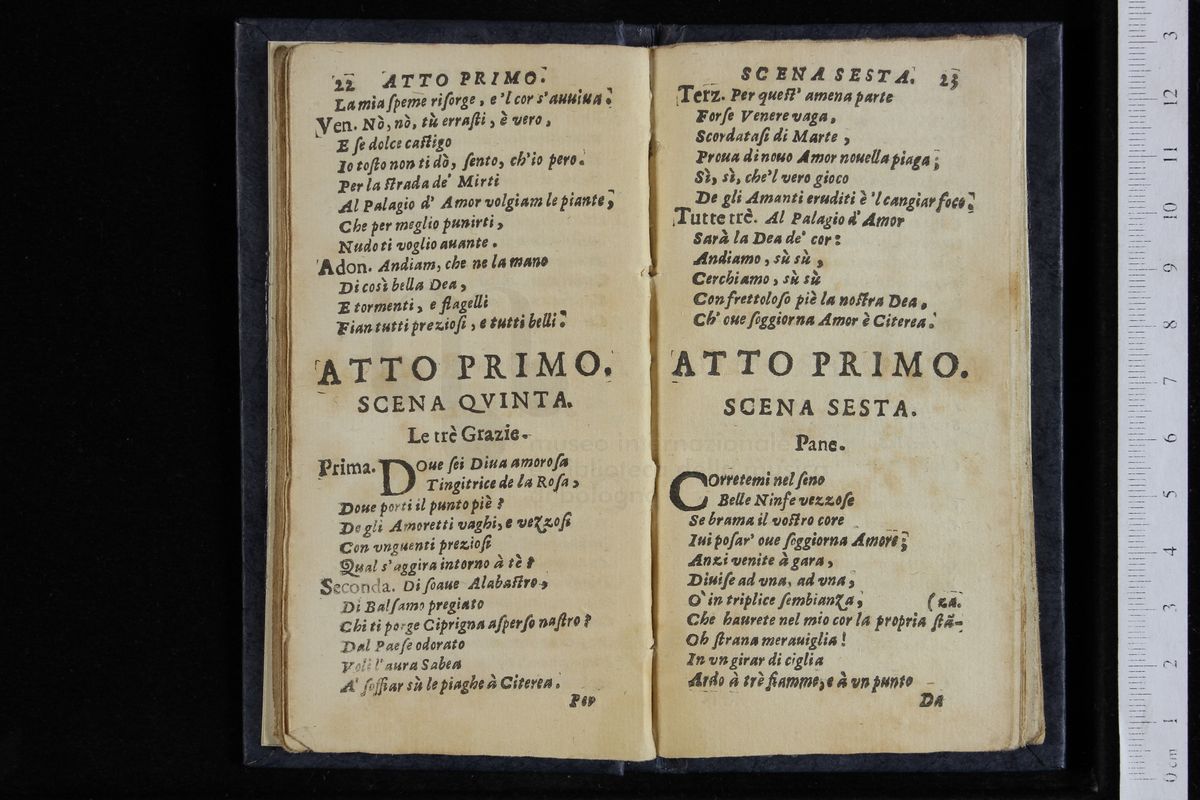 22 ATTO PRIMO.
La mia ſpeme riſorge, e 'l cor s'auuiua.
Ven. Nò, nò, tù erraſti, è vero,
E ſe dolce caſtigo
Io toſto non ti dò, ſento, ch'io pero.
Per la ſtrada de' Mirti
Al Palagio d' Amor volgiam le piante;
Che per meglio punirti,
Nudo ti voglio auante.
Adon. Andiam, che ne la mano
Di così bella Dea,
E tormenti, e flagelli
Fian tutti prezioſi, e tutti belli.
ATTO PRIMO.
SCENA QVINTA.
Le trè Grazie.
Prima. Doue ſei Diua amoroſa
Tingitrice de la Roſa,
Doue porti il punto piè?
De gli Amoretti vaghi, e vezzoſi
Con vnguenti prezioſi
Qual s'aggira intorno à tè?
Seconda. Di ſoaue Alabaſtro,
Di Balſamo pregiato
Chi ti porge Ciprigna aſperſo naſtro?
Dal Paeſe odorato
Voli l'aura Sabea
A' ſoffiar sù le piaghe à Citerea.
Per
SCENA SESTA. 23
Terz. Per queſt' amena parte
Forſe Venere vaga,
Scordataſi di Marte,
Proua di nouo Amor nouella piaga;
Sì, sì, che'l vero gioco
De gli Amanti eruditi è 'l cangiar foco.
Tutte trè. Al Palagio d' Amor
Sarà la Dea de' cor:
Andiamo, sù sù,
Cerchiamo, sù sù
Con frettoloſo piè la noſtra Dea.
Ch' oue ſoggiorna Amor è Citerea.
ATTO PRIMO.
SCENA SESTA.
Pane.
Corretemi nel ſeno
Belle Ninfe vezzoſe
Se brama il voſtro core
Iui poſar' oue ſoggiorna Amore;
Anzi venite à gara,
Diuiſe ad vna, ad vna,
O' in triplice ſembianza, (za.
Che haurete nel mio cor la propria ſtã-
Oh ſtrana merauiglia!
In vn girar di ciglia
Ardo à trè fiamme, e à vn punto
Da
0 cm 1 2 3 4 5 6 7 8 9 10 11 12 3